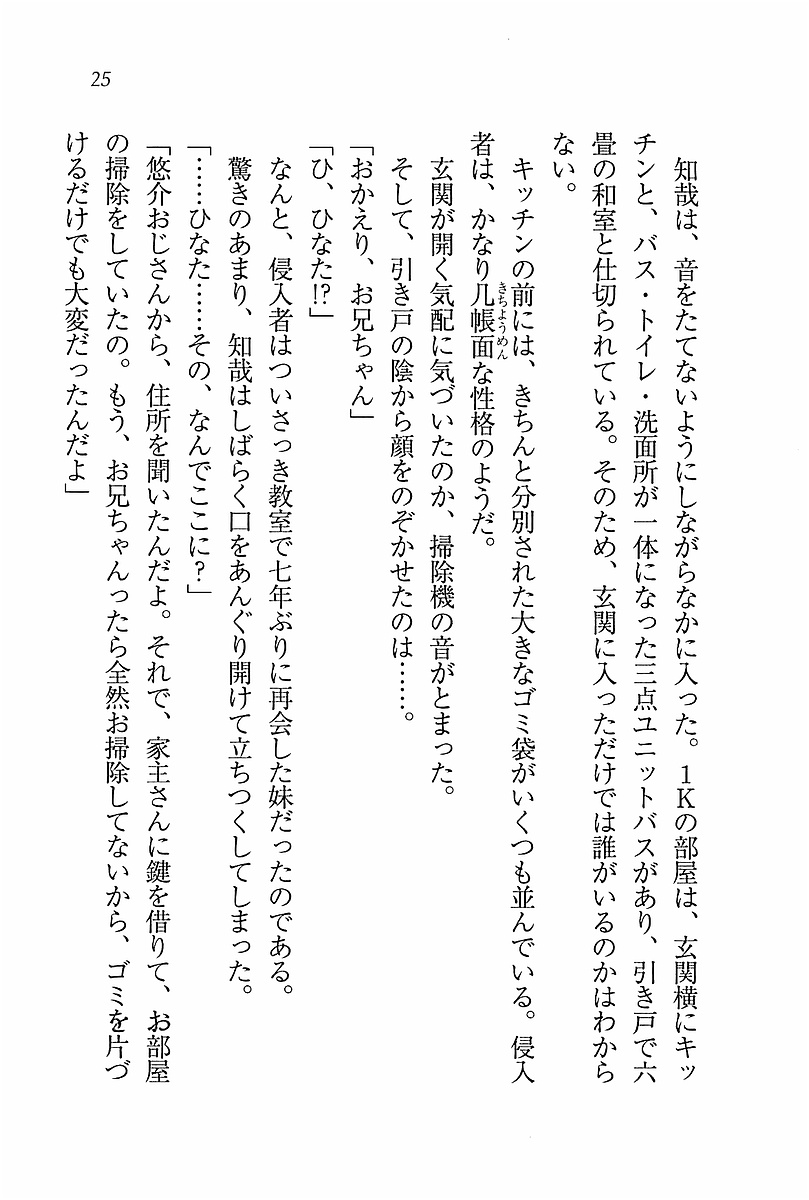 25
知哉は、音をたてないようにしながらなかに入った。1Kの部屋は、玄関横にキッ
チンと、バス・トイレ・洗面所が一体になった三点ユニットバスがあり、引き戸で六
畳の和室と仕切られている。そのため、玄関に入っただけでは誰がいるのかはわから
ない。
キッチンの前には、きちんと分別された大きなゴミ袋がいくつも並んでいる。侵入
者は、かなり几帳面な性格のようだ。
きちようめん
玄関が開く気配に気づいたのか、掃除機の音がとまった。
そして、引き戸の陰から顔をのぞかせたのは……。
「おかえり、お兄ちゃん」
「ひ、ひなた!?」
なんと、侵入者はついさっき教室で七年ぶりに再会した妹だったのである。
驚きのあまり、知哉はしばらく口をあんぐり開けて立ちつくしてしまった。
「……ひなた……その、なんでここに?」
「悠介おじさんから、住所を聞いたんだよ。それで、家主さんに鍵を借りて、お部屋
の掃除をしていたの。もう、お兄ちゃんったら全然お掃除してないから、ゴミを片づ
けるだけでも大変だったんだよ」